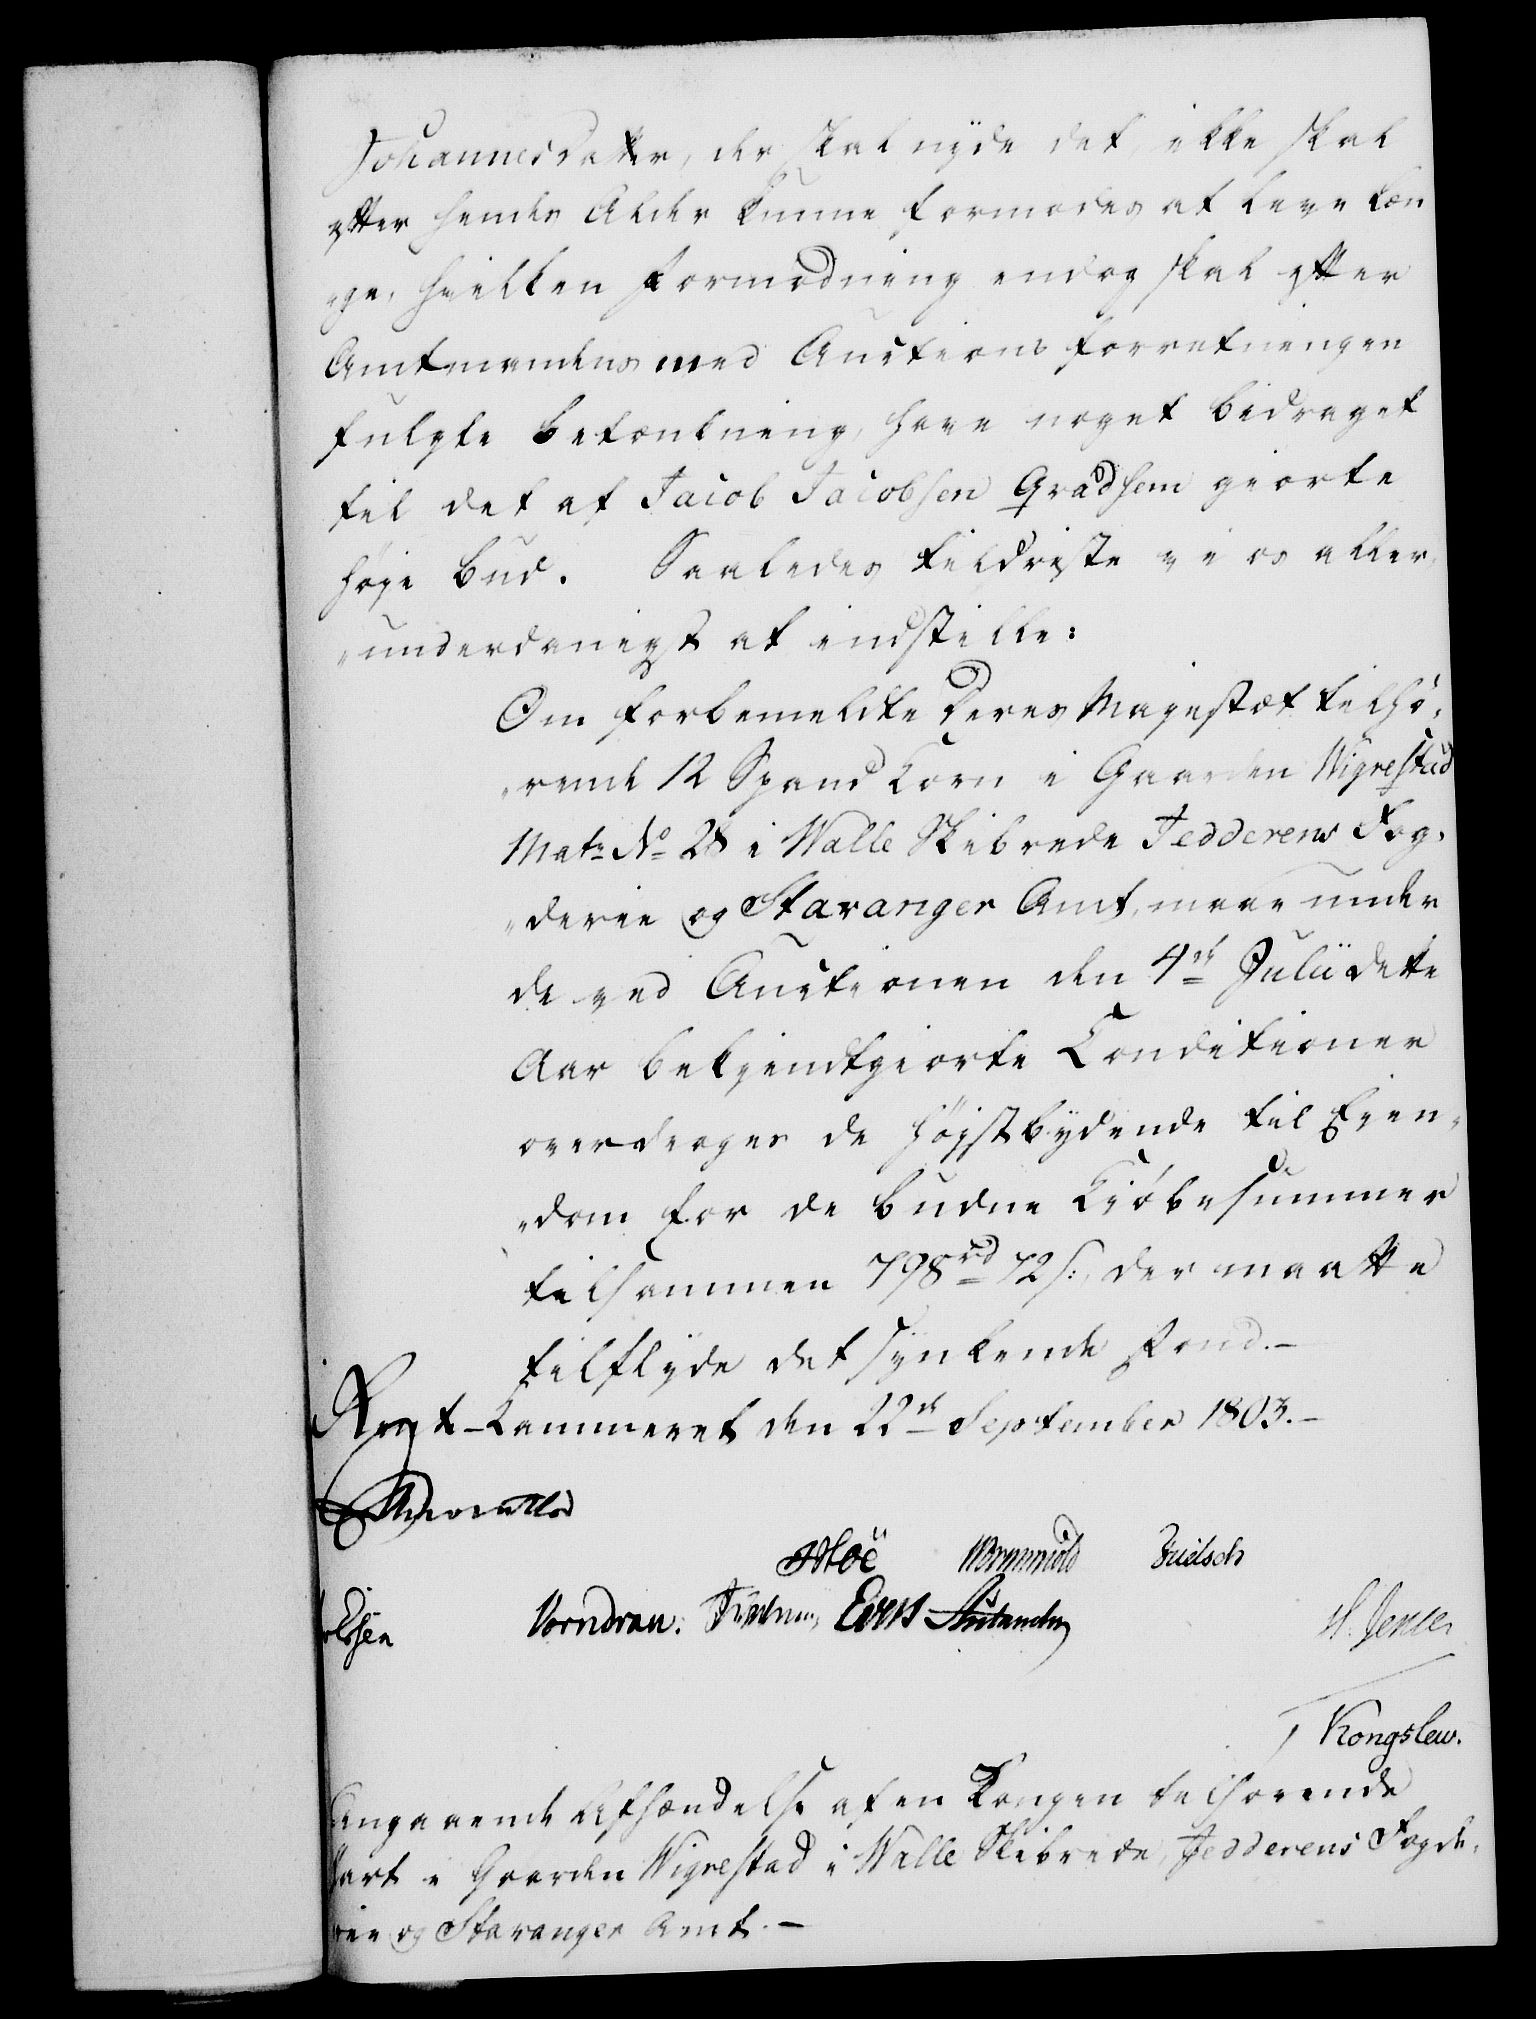 Johannesdatter, der skal nyde det, ikke skal
efter hendes Alder kunne formodes at leve læn
„ge, hvilken Formodning endog skal efter
Amtmandens med Auctions Forretningen
fulgte Betænkning, have noget bidraget
til det af Jacob Jacobsen Gradhem giorte
høje Bud. Saaledes fildriste vi os aller„
„underdanigst at indstille:
Om forbemeldte Deres Majestæt tilhø„
„rende 12 Spand Korn i Gaarden Wigrestad
Matr No 28 i Walle Skibrede Jedderens Fog„
„derie og Stavanger Amt, maae under
de ved Auctionen den 4de Julii dette
Aar bekjendtgiorte Conditioner
overdrages de højstbydende til Ejen„
„dom for de budne Kiøbesummer
tilsammen 798rd 72s:, der maatte
tilflyde det synkende Fond.–
Rentekammeret den 22de September 1803.–
Moë Wormskiold
Vorndran. Evers
H. Jensen
Kongslew.
Angaaende Afhændelse af en Kongen tilhørende
Part i Gaarden Wigrestad i Walle Skibrede, Jedderens Fogde„
rie og Stavanger Amt.–